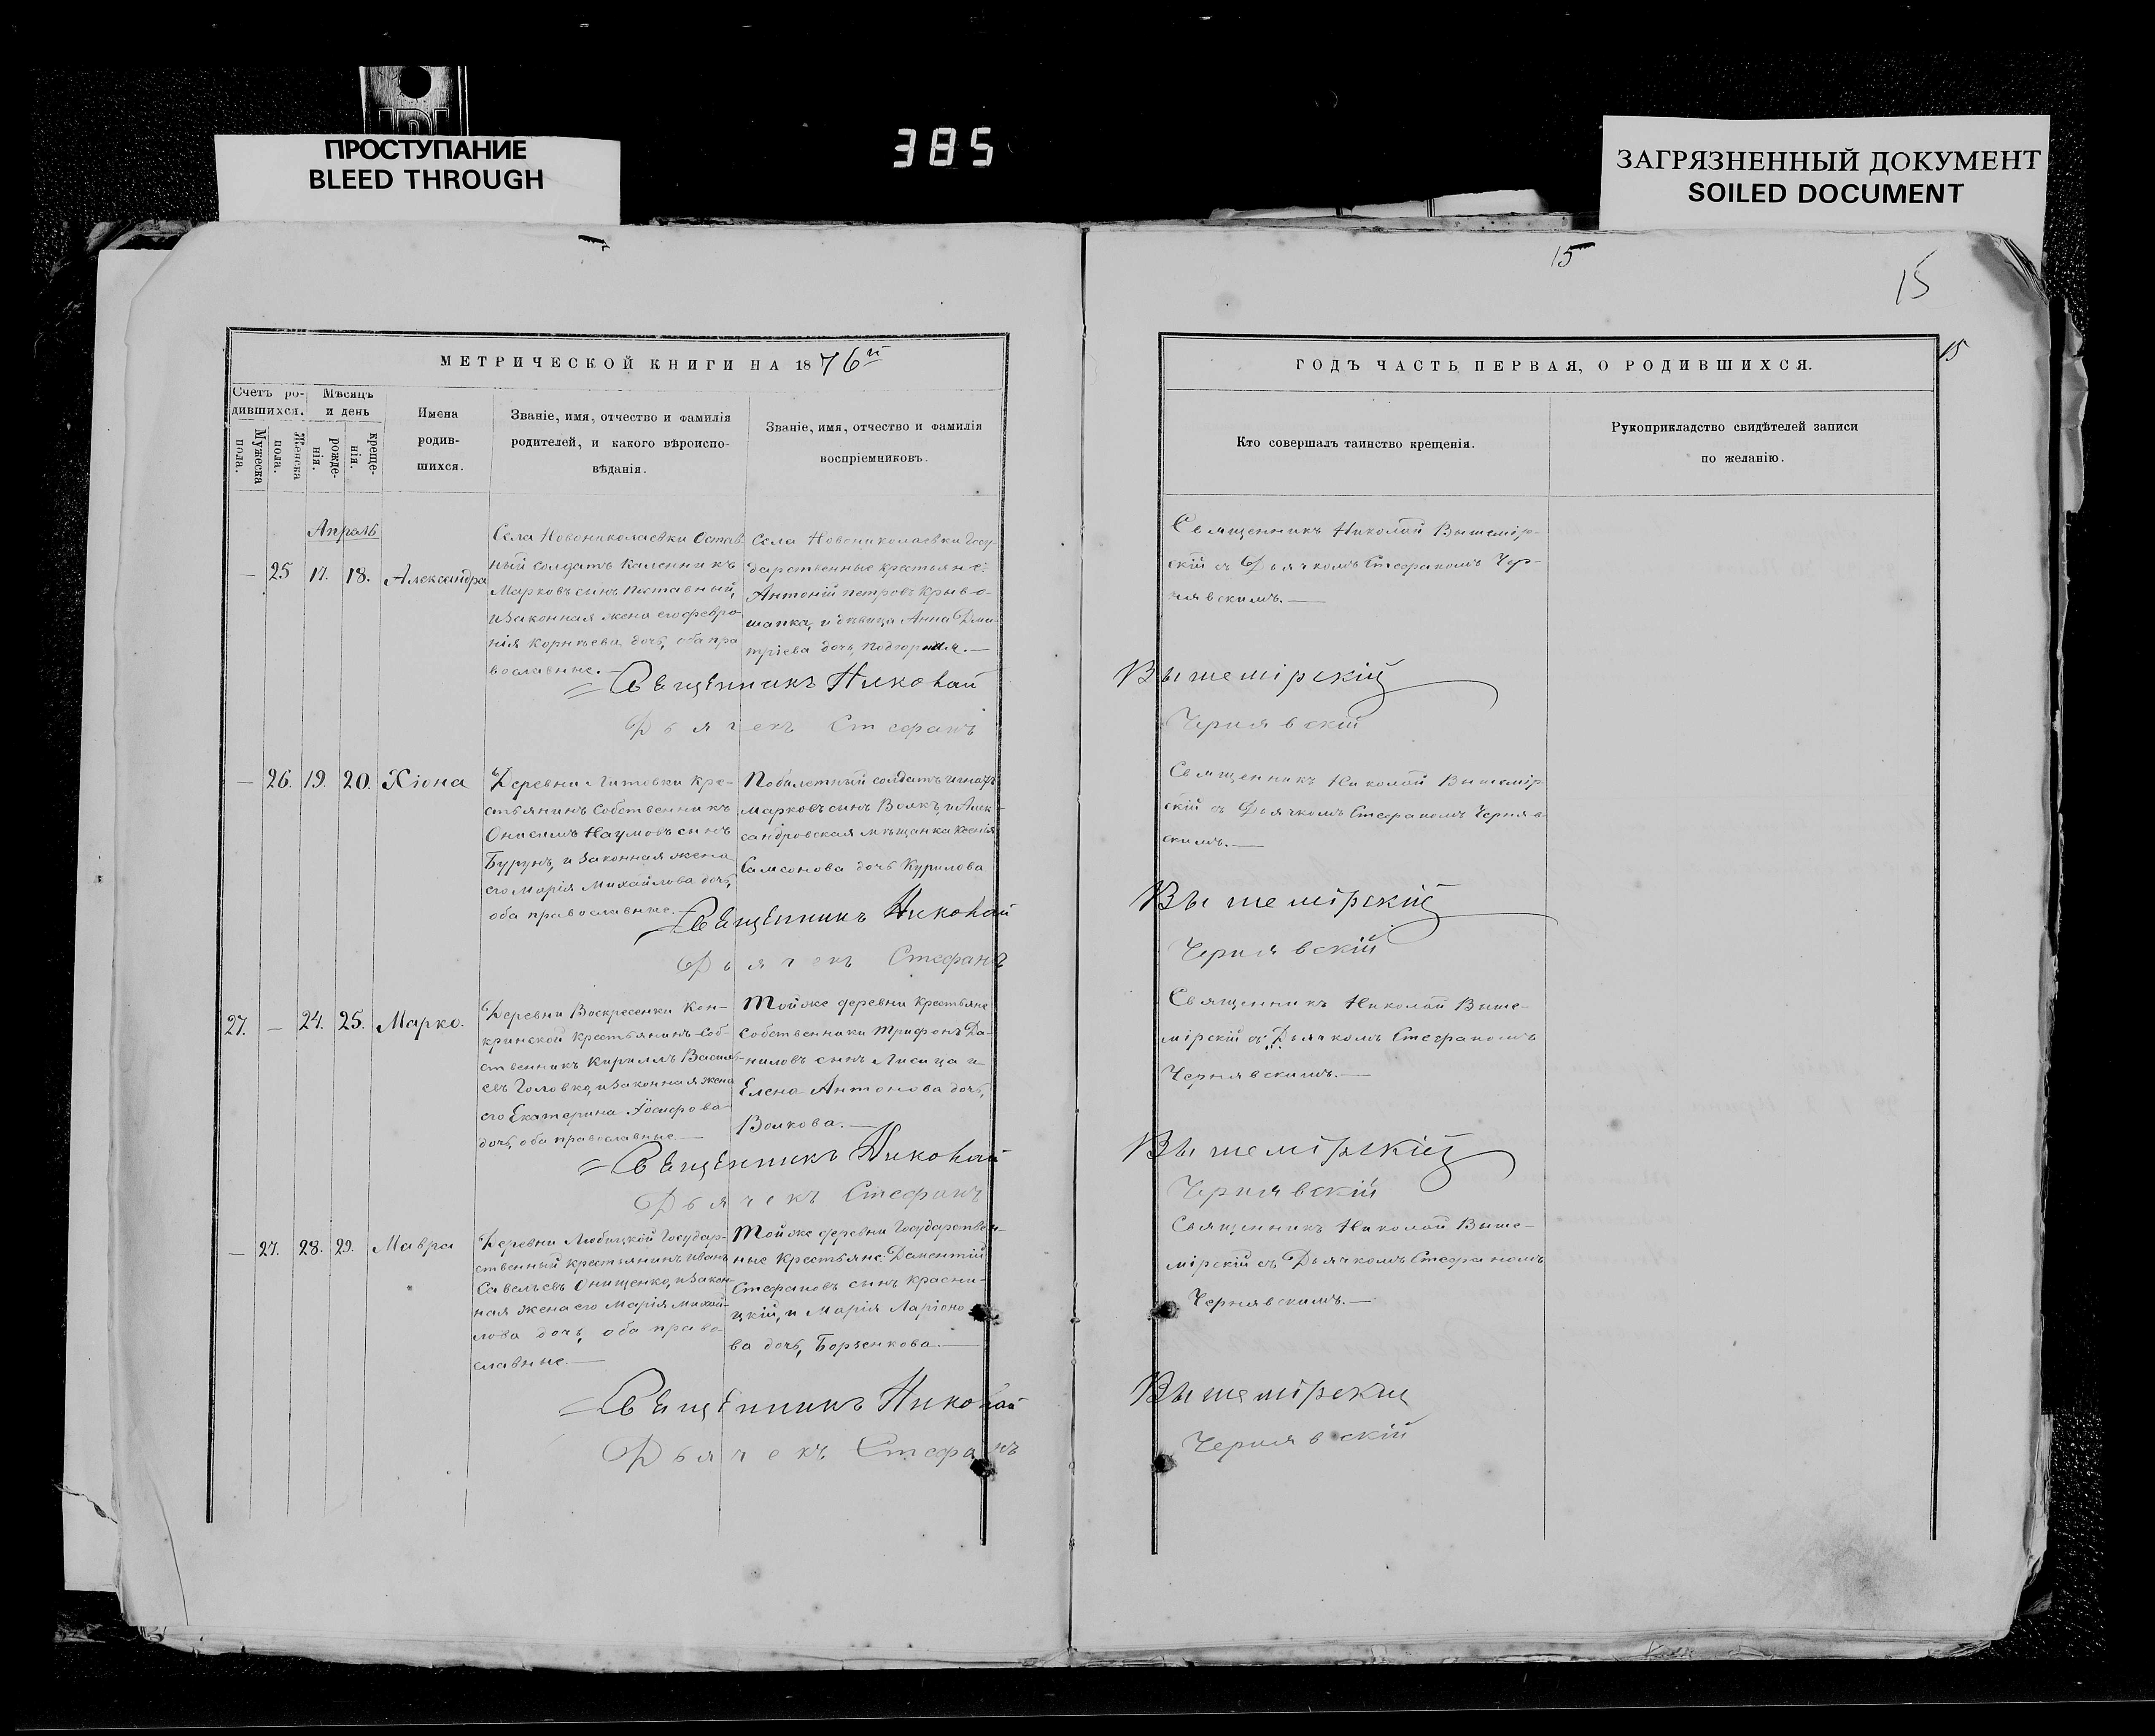 ПРОСТУПАНИЕ
BLEED THROUGH
385
ЗАГРЯЗНЕННЫЙ ДОКУМЕНТ
SOILED DOCUMENT
15
15
15
МЕТРИЧЕСКОЙ КНИГИ НА 1876й
Счетъ ро-
дившихся.
Мужеска
пола.
Женска
пола.
Мѣсяцъ
и день
рожде-
нія.
креще-
нія.
Имена
родив-
шихся.
Званіе, имя, отчество и фамилія
родителей, и какого вѣроиспо-
вѣданія.
Званіе, имя, отчество и фамилія
воспріемниковъ.
Апрѣль
— 25 17. 18. Александра
Села Новониколаевки Остав
ный солдатъ Каленникъ
Марковъ сынъ Поставный,
и законная жена его Февро
нія Корнѣева дочь, оба пра
вославные.—
Села Новониколаевки Госу-
дарственные крестьяне:
Антоній Петровъ Криво-
шапка, и дѣвица Анна Дми-
тріева дочь Подгорная.—
Священникъ Николай
Дьячекъ Стефанъ
— 26. 19. 20. Хіона
Деревни Литовки Кре-
стьянинъ Собственникъ
Онисимъ Наумовъ сынъ
Бурунъ, и законная жена
его Марія Михайлова дочь,
оба православные.—
Побилетный солдатъ Игнатъ
Марковъ сынъ Волкъ, и Алек-
сандровская мѣщанка Ксенія
Самсонова дочь Курилова
Священникъ Николай
Дьячекъ Стефанъ
27. — 24. 25. Марко.
Деревни Воскресенки Кон-
кринской крестьянинъ Соб-
ственникъ Кириллъ Василь-
евъ Головко, и законная жена
его Екатерина Іосифова
дочь, оба православные.—
Той же деревни Крестьяне
Собственники Трифонъ Да-
ниловъ сынъ Лисица и
Елена Антонова дочь,
Волкова.—
Священникъ Николай
Дьячекъ Стефанъ
— 27. 28. 29. Мавра
Деревни Любицкой Государ-
ственный крестьянинъ Иванъ
Савельевъ Онищенко, и закон-
ная жена его Марія Михай-
лова дочь, оба право
славные.—
Той же деревни Государствен-
ные Крестьяне: Дементій
Стефановъ сынъ Красни-
цкій, и Марія Ларіоно-
ва дочь, Борзенкова.—
Священникъ Николай
Дьячекъ Стефанъ
ГОДЪ ЧАСТЬ ПЕРВАЯ, О РОДИВШИХСЯ.
Кто совершалъ таинство крещенія.
Рукоприкладство свидѣтелей записи
по желанію.
Священникъ Николай Вышемір-
скій съ Дьячкомъ Стефаномъ Чер-
нявскимъ.—
Вышемірскій
Чернявскій
Священникъ Николай Вышемір-
скій съ Дьячкомъ Стефаномъ Черняв-
скимъ.—
Вышемірскій
Чернявскій
Священникъ Николай Выше-
мірскій съ Дьячкомъ Стефаномъ
Чернявскимъ.—
Вышемірскій
Чернявскій
Священникъ Николай Выше-
мірскій съ Дьячкомъ Стефаномъ
Чернявскимъ.—
Вышемірскій
Чернявскій